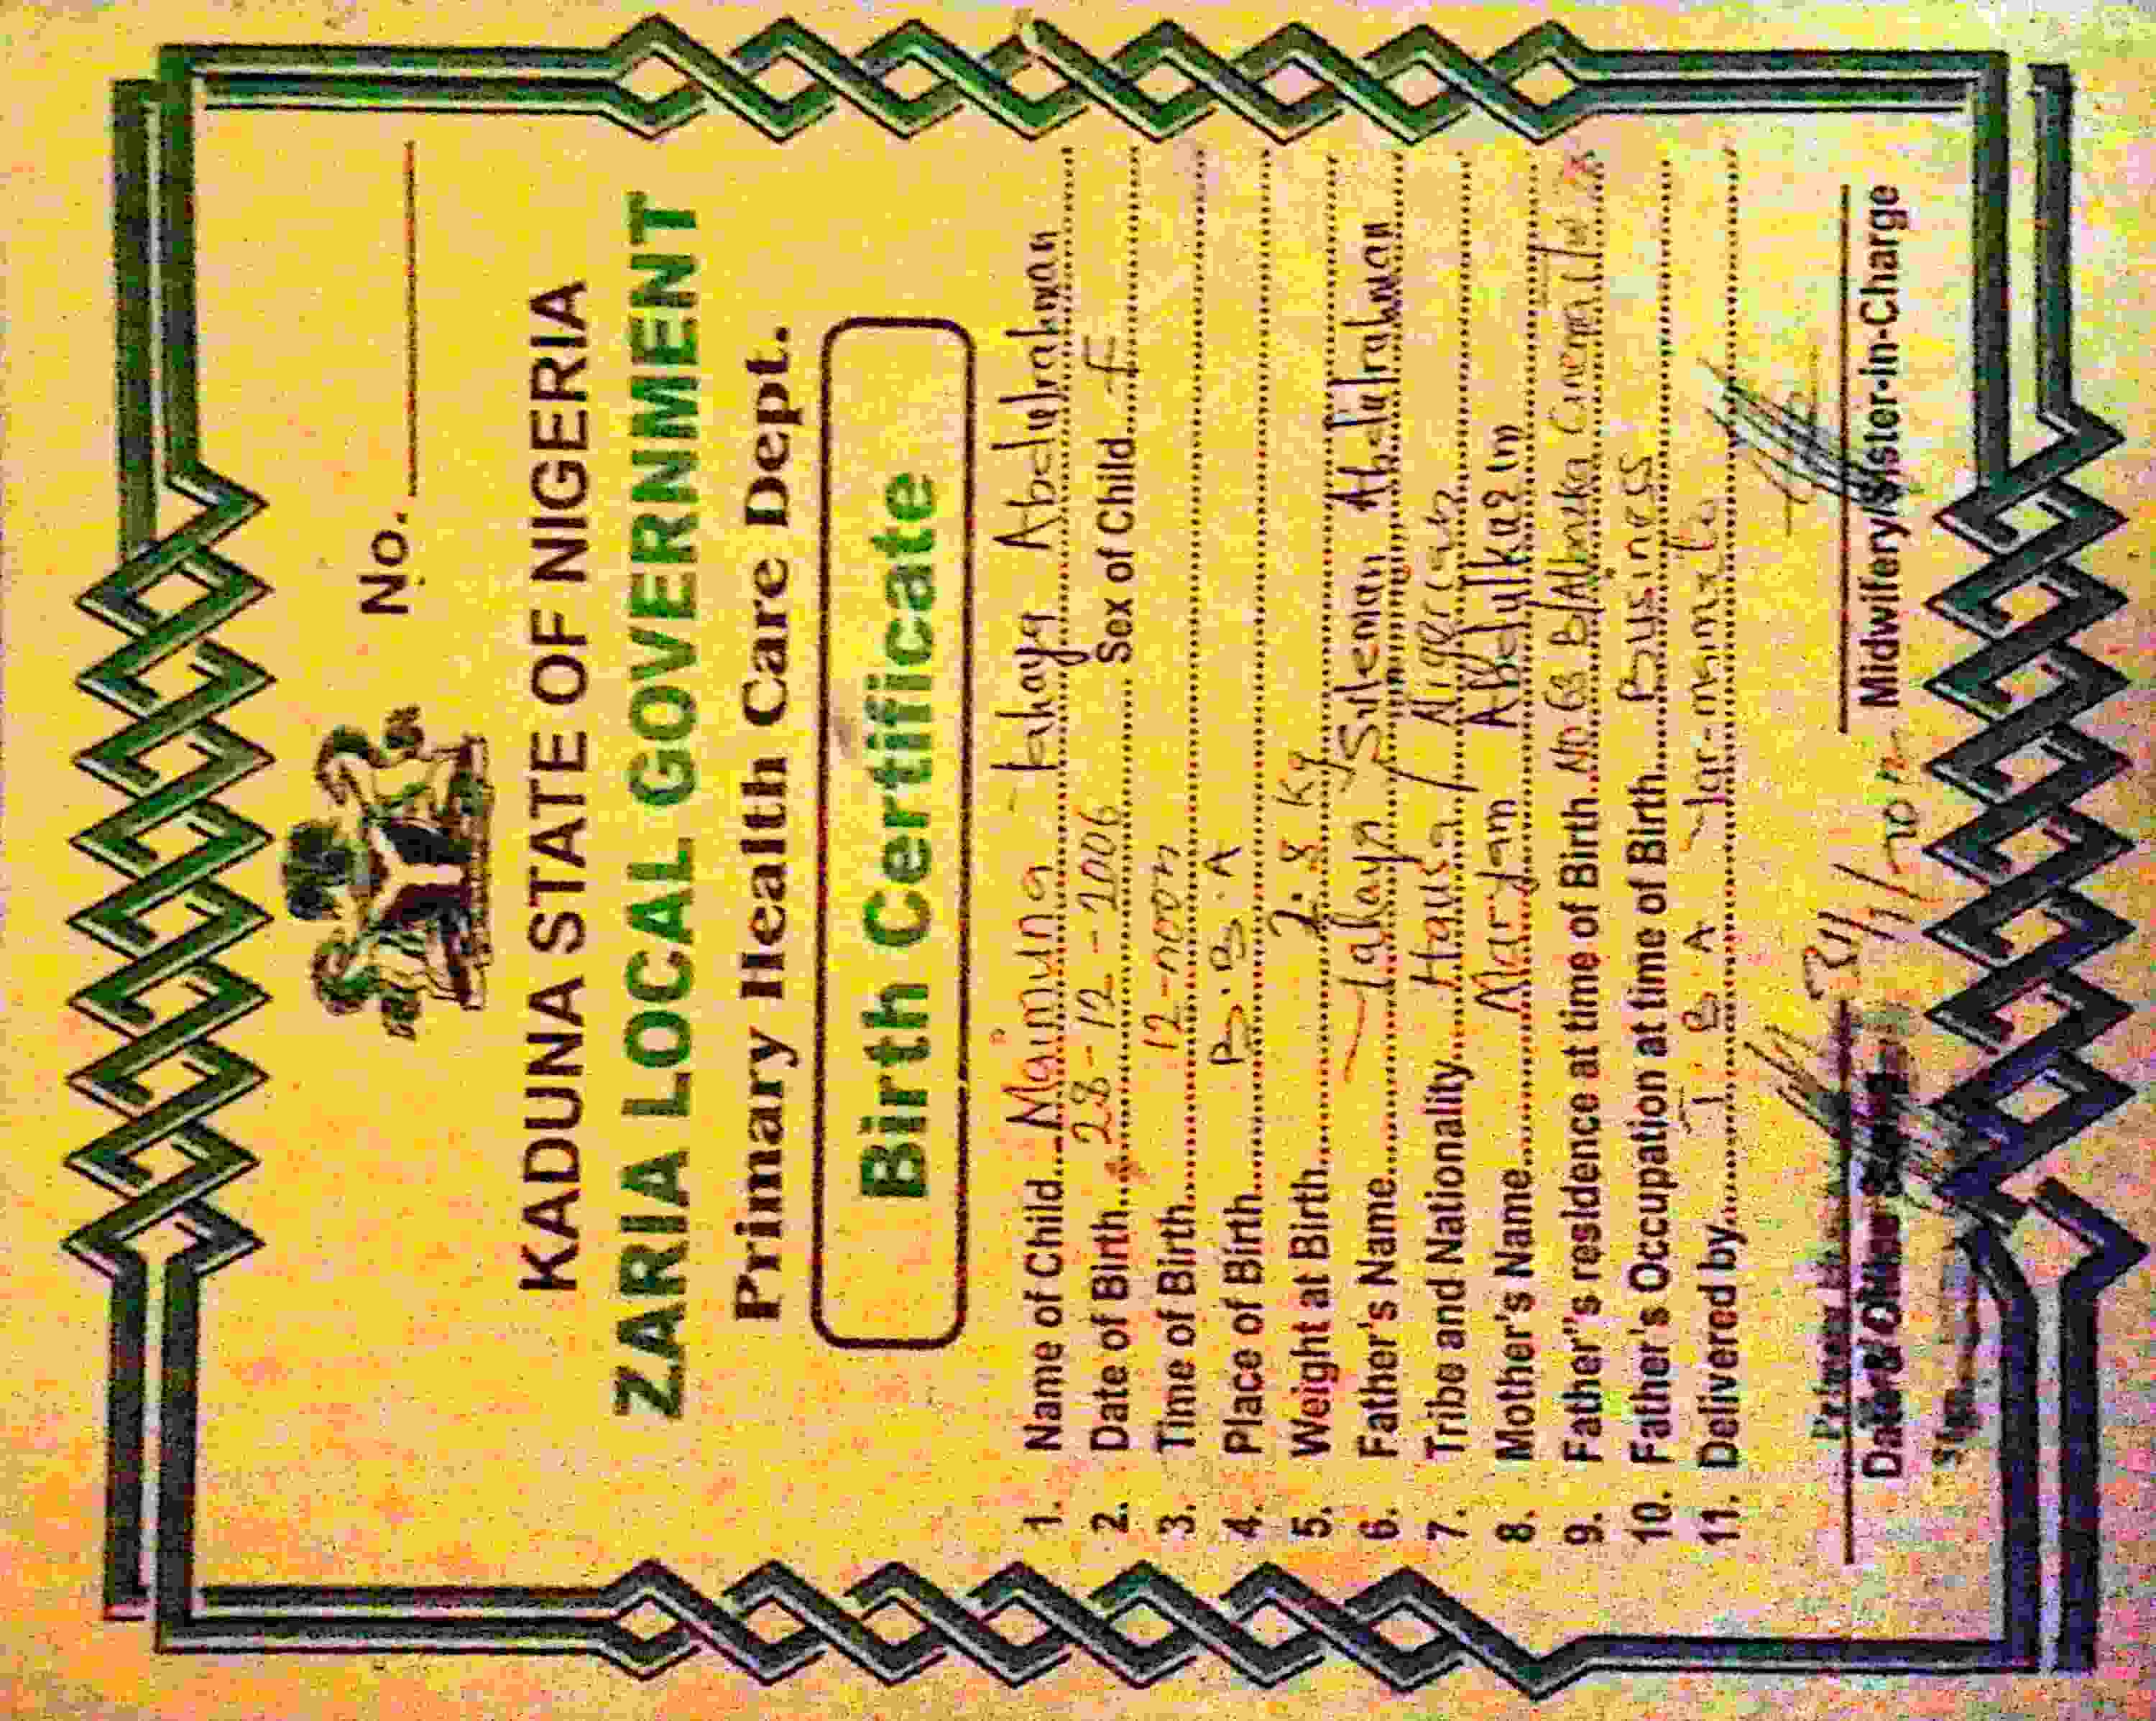 No.
KADUNA STATE OF NIGERIA
ZARIA LOCAL GOVERNMENT
Primary Health Care Dept.
Birth Certificate
1. Name of Child Maimuna Yahaya Abdulrahman
2. Date of Birth 28-12-2006 Sex of Child F
3. Time of Birth 12-noon
4. Place of Birth B.B.A
5. Weight at Birth 2.8 Kg
6. Father's Name Yahaya Suleman Abdulrahman
7. Tribe and Nationality Hausa / Nigerian
8. Mother's Name Maryam Abdulkarim
9. Father"s residence at time of Birth No 63 B/Albarka Cinema
10. Father's Occupation at time of Birth Business
11. Delivered by T.B.A
Midwifery/Sister-in-Charge